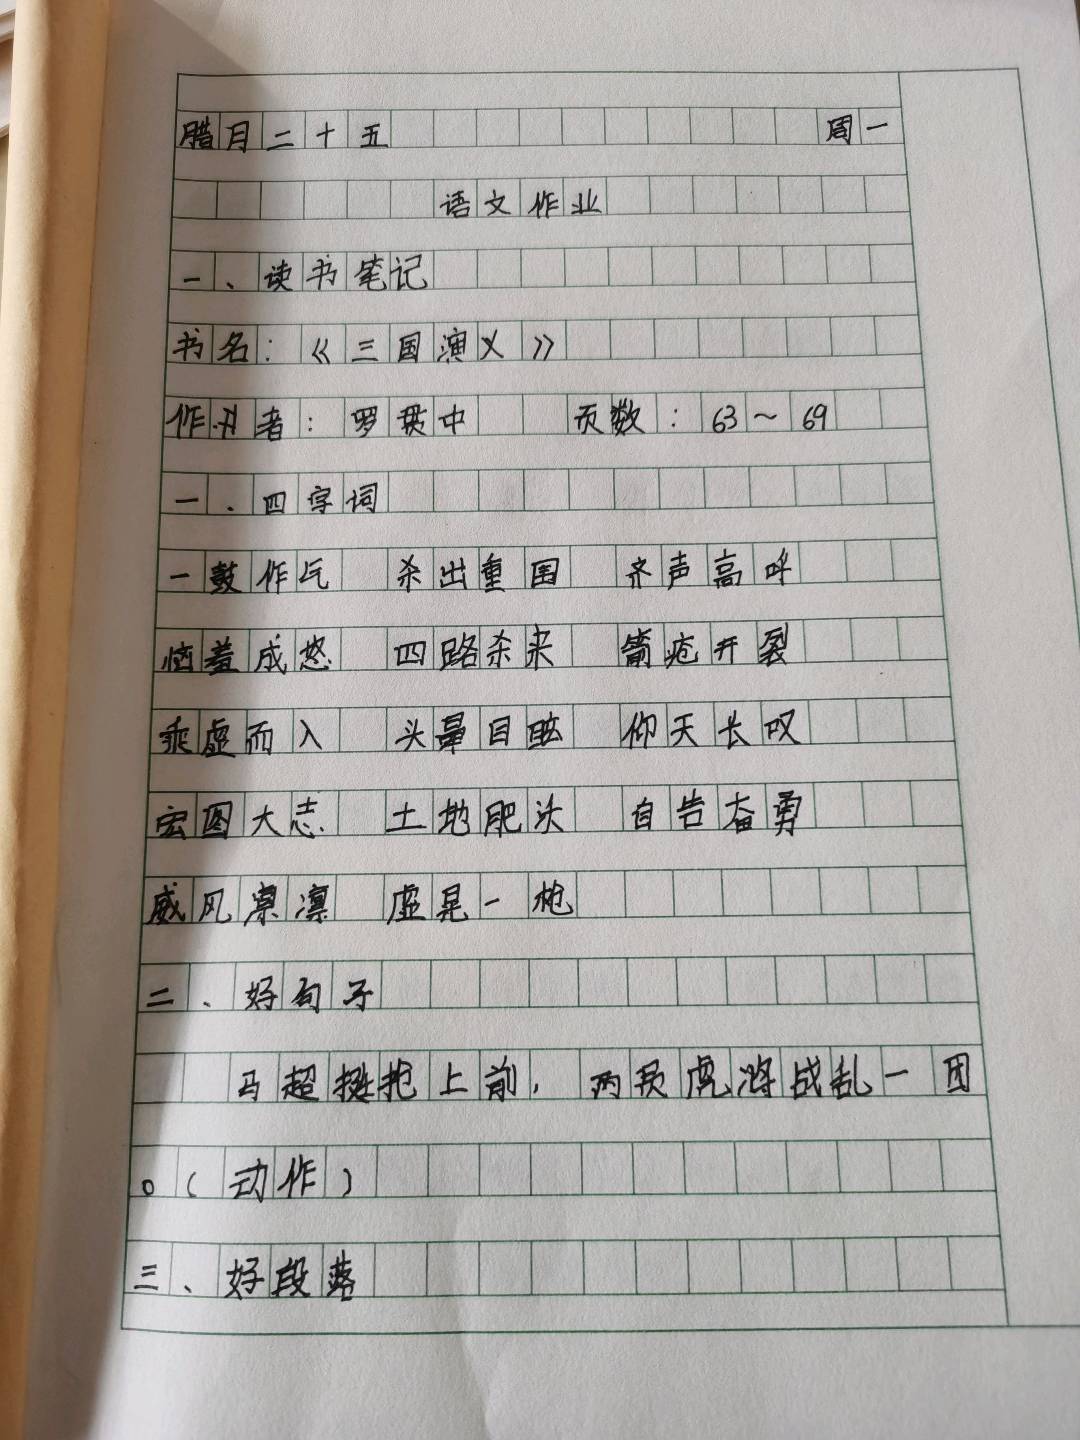 腊月二十五 周一
语文作业
一、读书笔记
书名：《三国演义》
作者：罗贯中 页数：63～69
一、四字词
一鼓作气 杀出重围 齐声高呼
恼羞成怒 四路杀来 箭疮开裂
乘虚而入 头晕目眩 仰天长叹
宏图大志 土地肥沃 自告奋勇
威风凛凛 虚晃一枪
二、好句子
马超挺枪上前，两员虎将战乱一团
。（动作）
三、好段落